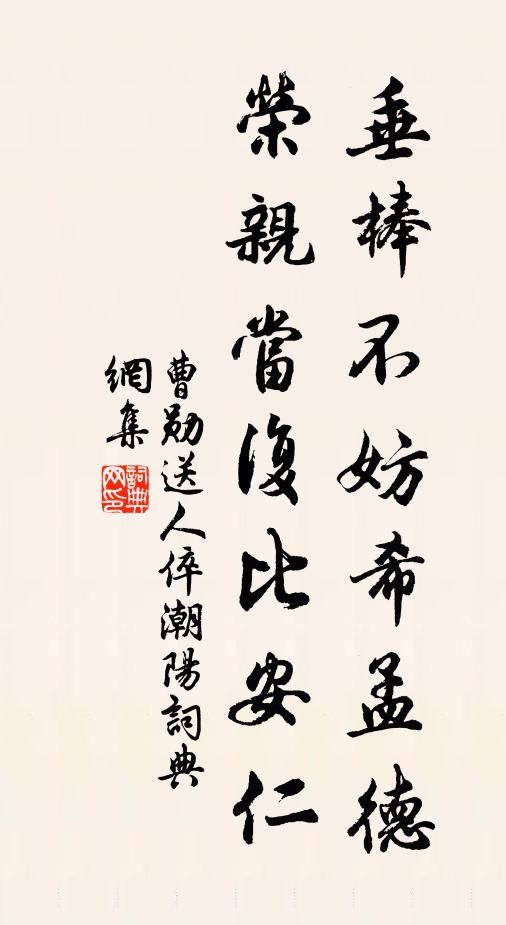 垂棒不妨希孟德
榮親當復比安仁
曹勛送人倅潮陽詞典
網集
詞典网印